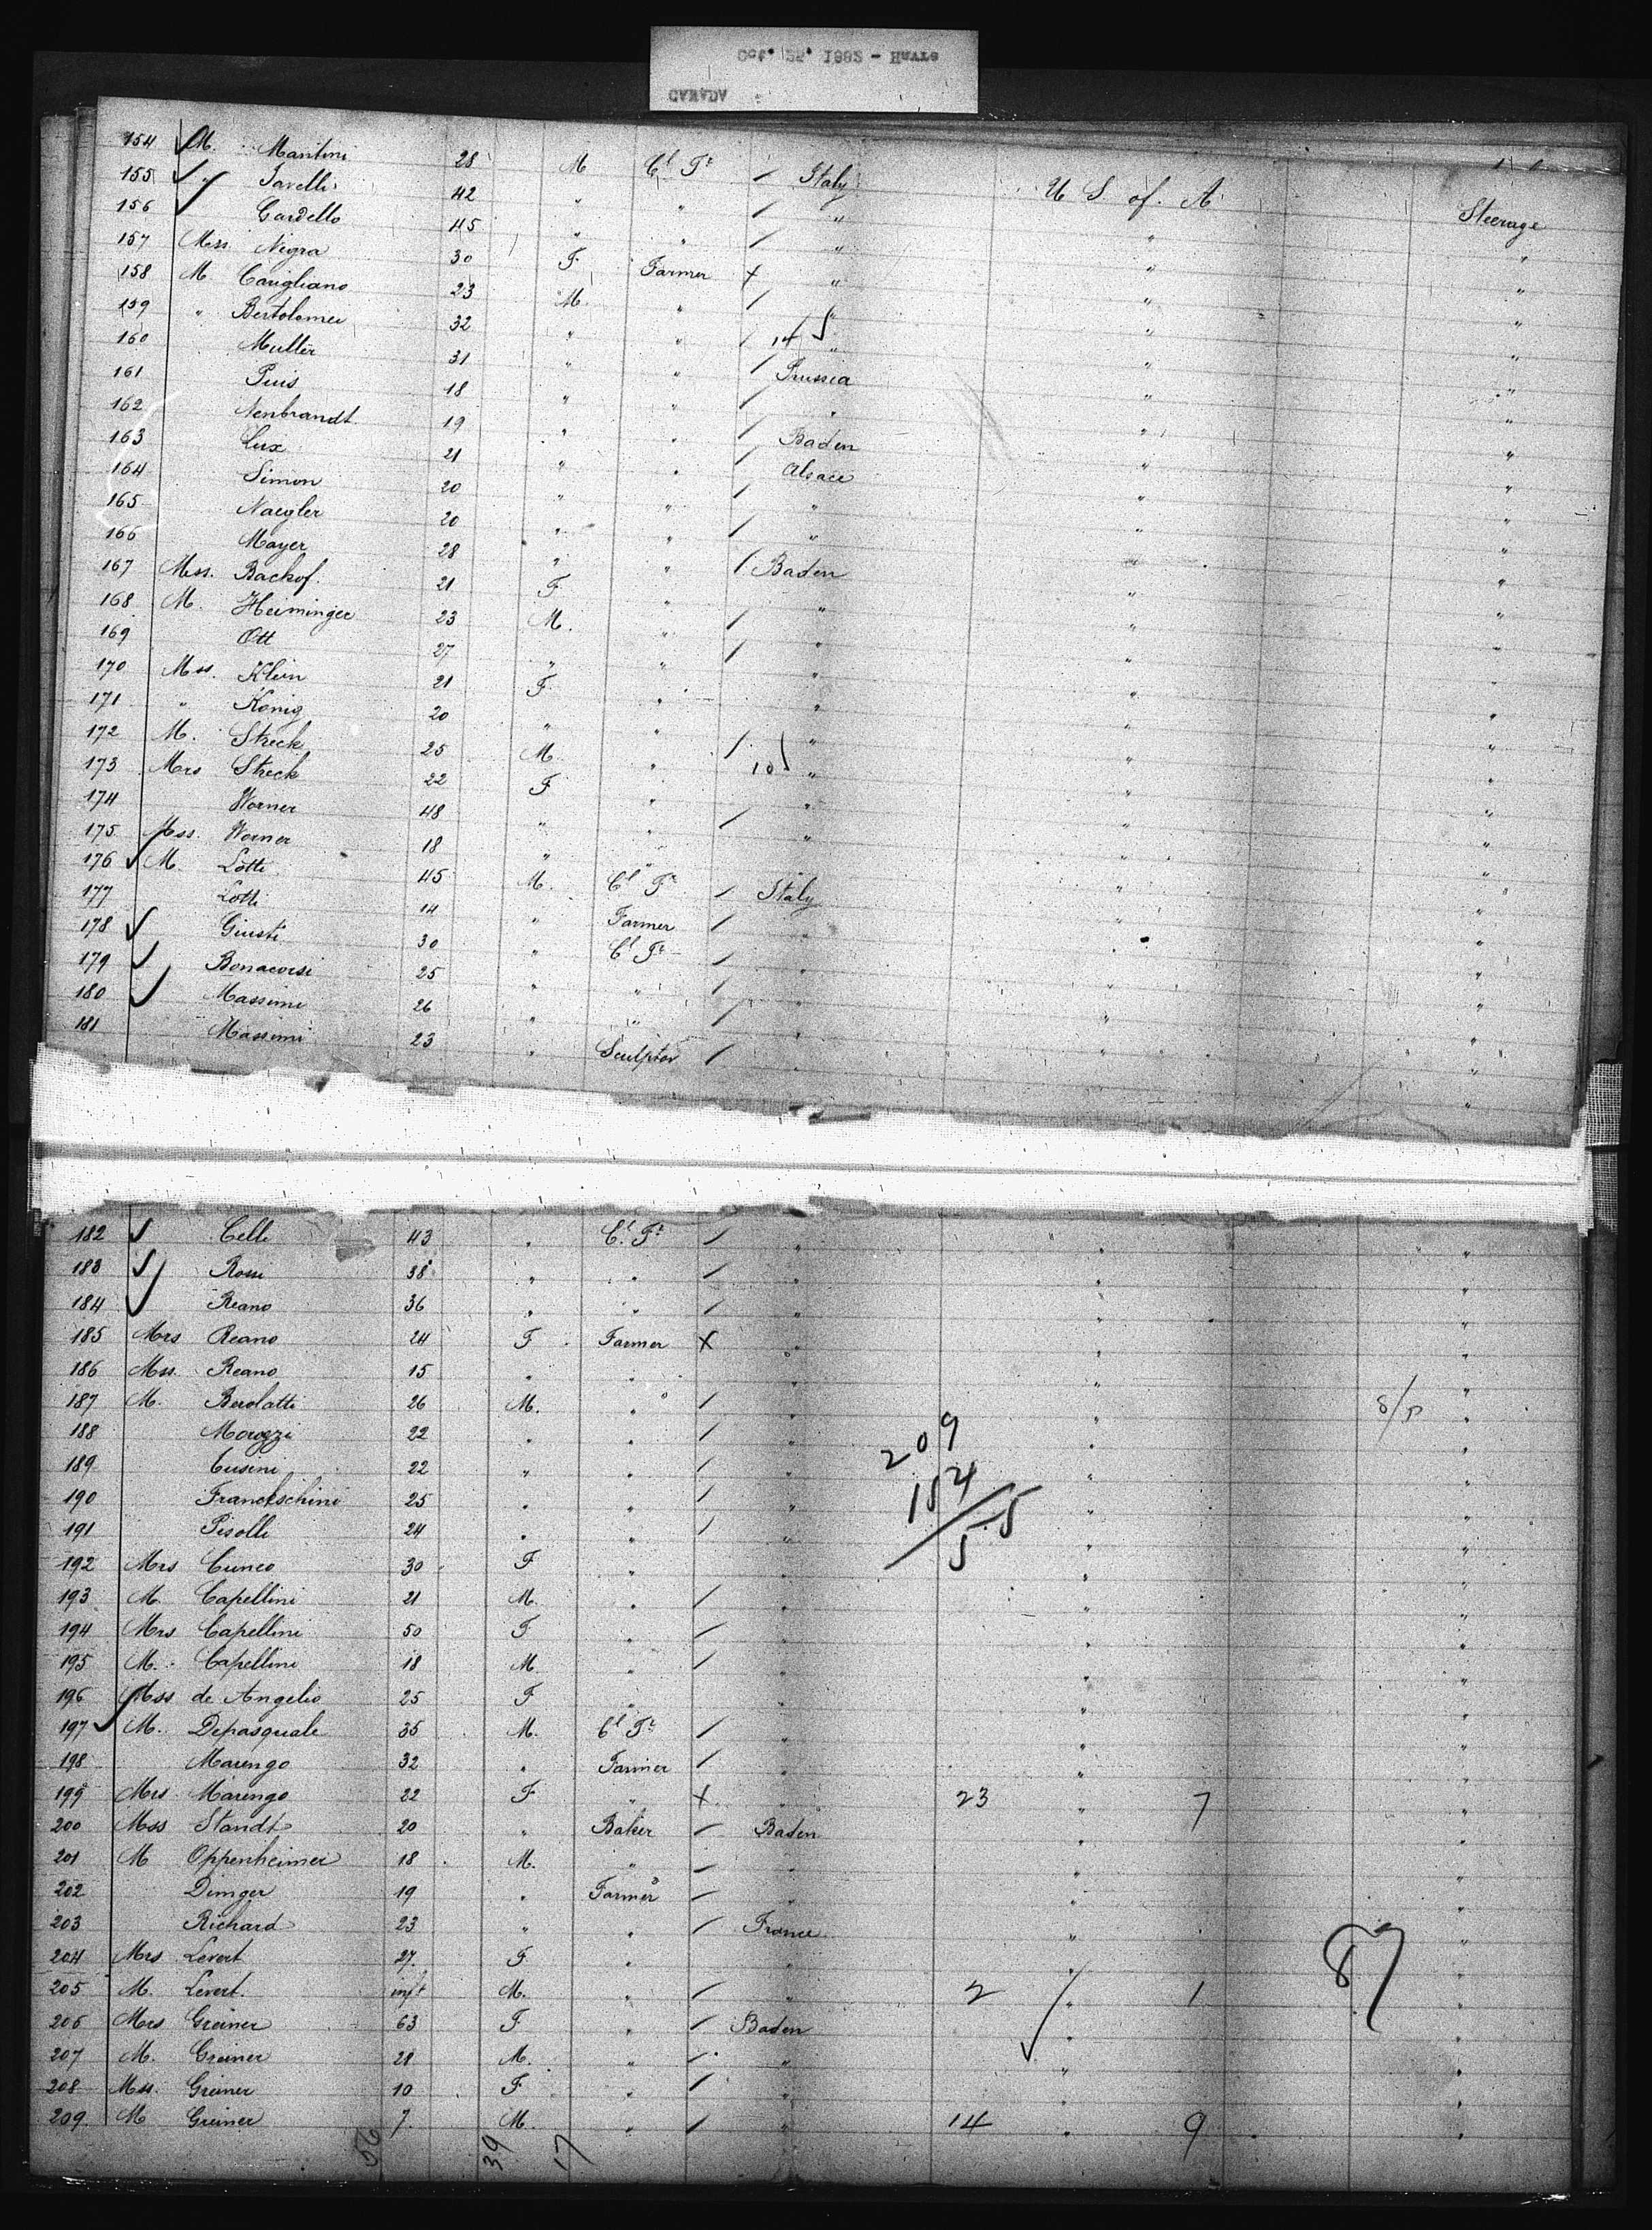 Oct. 25. 1882 - Havre
CANADA :
154 M. Mantini 28 M Cl Fr / Italy U S of. A Steerage
155 " Savelli 42 " " / " " "
156 Cardello 45 " " / " " "
157 Mss. Nigra 30 F Farmer x " " "
158 M Carigliano 23 M. " / " " "
159 " Bertolomei 32 " " / 14 " " "
160 Muller 31 " " / Prussia " "
161 Puis 18 " " / " " "
162 Nenbrandt 19 " " / Baden " "
163 Lux 21 " " / Alsace " "
164 Simon 20 " " / " " "
165 Naegler 20 " " / " " "
166 Mayer 28 " " / Baden " "
167 Mss. Bachof. 21 F " " " "
168 M. Heiminger 23 M. " / " " "
169 Ott 27 " " / " " "
170 Mss. Klein 21 F " " " "
171 " König 20 " " " " "
172 M. Streck 25 M. " / 10 " " "
173 Mrs Streck 22 F " " " "
174 Worner 48 " " / " " "
175 Mss. Worner 18 " " " "
176 M. Lotti 45 M. Cl Fr / Italy " "
177 Lotti 14 " Farmer / " " "
178 Giusti 30 " Cl Fr / " " "
179 Bonacorsi 25 " " / " " "
180 Massimi 26 " " / " " "
181 Massimi 23 " Sculptor / " "
182 Celli 43 " Cl. Fr / " " "
183 Rossi 38 " " / " " "
184 Reano 36 " " / " " "
185 Mrs Reano 24 F Farmer X " " "
186 Mss. Reano 15 " " " " "
187 M. Berolatti 26 M. " / " " "
188 Morozzi 22 " " / " " "
209
189 Cusini 22 " " / " " "
154
190 Franckschini 25 " " / " " "
55
191 Pisolli 24 " " / " " "
5
192 Mrs Cuneo 30 F " " " "
193 M. Capellini 21 M. " / " " "
194 Mrs Capellini 50 F " / " " "
195 M. Capellini 18 M " / " " "
196 Mss de Angelis 25 F " " " "
197 M. Depasquale 35 M. Cl Fr / " " "
198 Marengo 32 " Farmer / " " "
199 Mrs Marengo 22 F " x " 23 " 7 "
200 Mss Standt 20 " Baker / Baden " "
201 M Oppenheimer 18 M. " / " " "
202 Dinger 19 " Farmer / " " "
203 Richard 23 " " / France " "
204 Mrs Levert 27. F " " " 87 "
205 M. Levert. inft M. " / " 2 " 1 "
206 Mrs Greiner 63 F " / Baden " "
207 M. Greiner 28 M. " / " " "
208 Mss. Greiner 10 F " / " " "
209 M Greiner 7. M. " / " 14 " 9 "
56 39 17